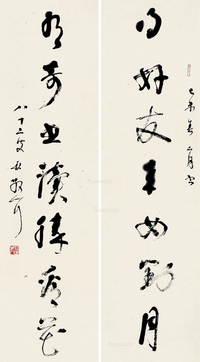 得好友來如對月
己未春二月書
有奇書讀勝看花
八十三叟林散耳